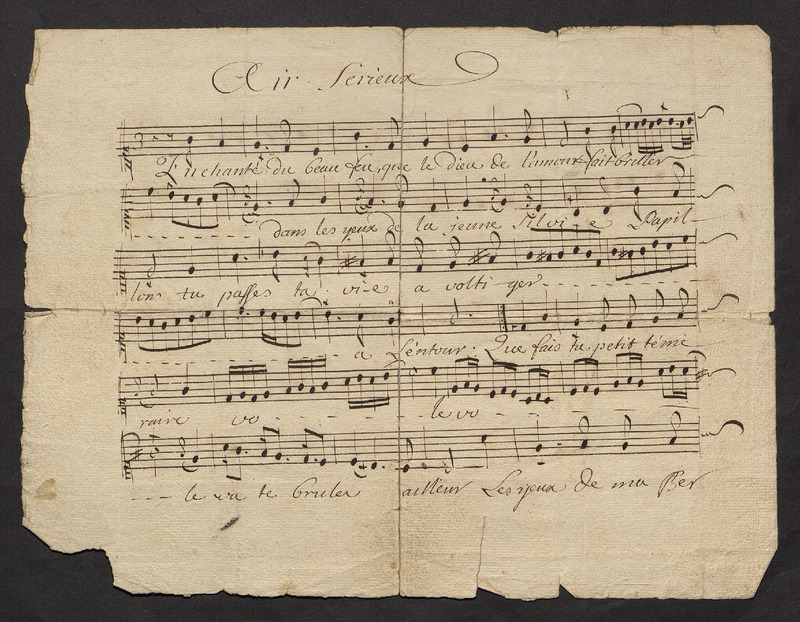 Air Serieux
Enchanté du beau feu, que le dieu de l'amour fait bruler
dans les yeux de la jeune Silvi-e Papil-
lon tu passes ta vi-e a volti ger
a L'entour. Que fais tu petit téme
raire vo le vo
le va te bruler ailleur Les yeux de ma Ber